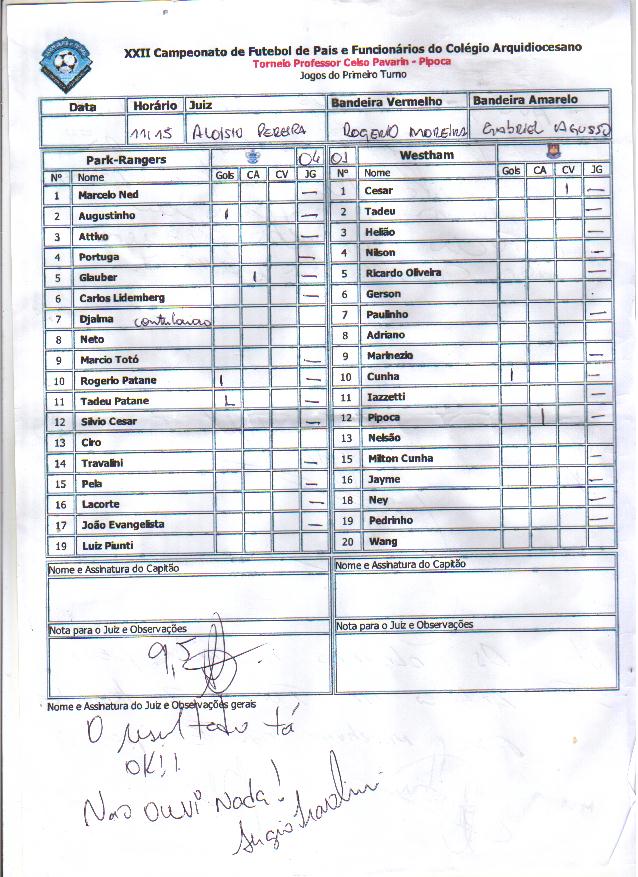 XXII Campeonato de Futebol de Pais e Funcionários do Colégio Arquidiocesano
Torneio Professor Celso Pavarin - Pipoca
Jogos do Primeiro Turno
Data Horário Juiz Bandeira Vermelho Bandeira Amarelo
11:15 ALOISIO PEREIRA ROGERIO MOREIRA Gabriel
Park-Rangers 04 01 Westham
Nº Nome Gols CA CV JG Nº Nome Gols CA CV JG
1 Marcelo Ned — 1 Cesar | —
2 Augustinho | — 2 Tadeu —
3 Attivo — 3 Helião —
4 Portuga — 4 Nilson —
5 Glauber | — 5 Ricardo Oliveira —
6 Carlos Lidemberg — 6 Gerson
7 Djalma 7 Paulinho —
8 Neto 8 Adriano
9 Marcio Totó — 9 Marinezio —
10 Rogerio Patane | — 10 Cunha | —
11 Tadeu Patane L — 11 Iazzetti —
12 Silvio Cesar — 12 Pipoca | —
13 Ciro 13 Nelsão
14 Travalini — 15 Milton Cunha —
15 Pela — 16 Jayme —
16 Lacorte — 18 Ney —
17 João Evangelista — 19 Pedrinho —
19 Luiz Piunti 20 Wang
Nome e Assinatura do Capitão Nome e Assinatura do Capitão
Nota para o Juiz e Observações Nota para o Juiz e Observações
9,5
Nome e Assinatura do Juiz e Observações gerais
O resultado tá
OK!!
Nao ouvi nada!